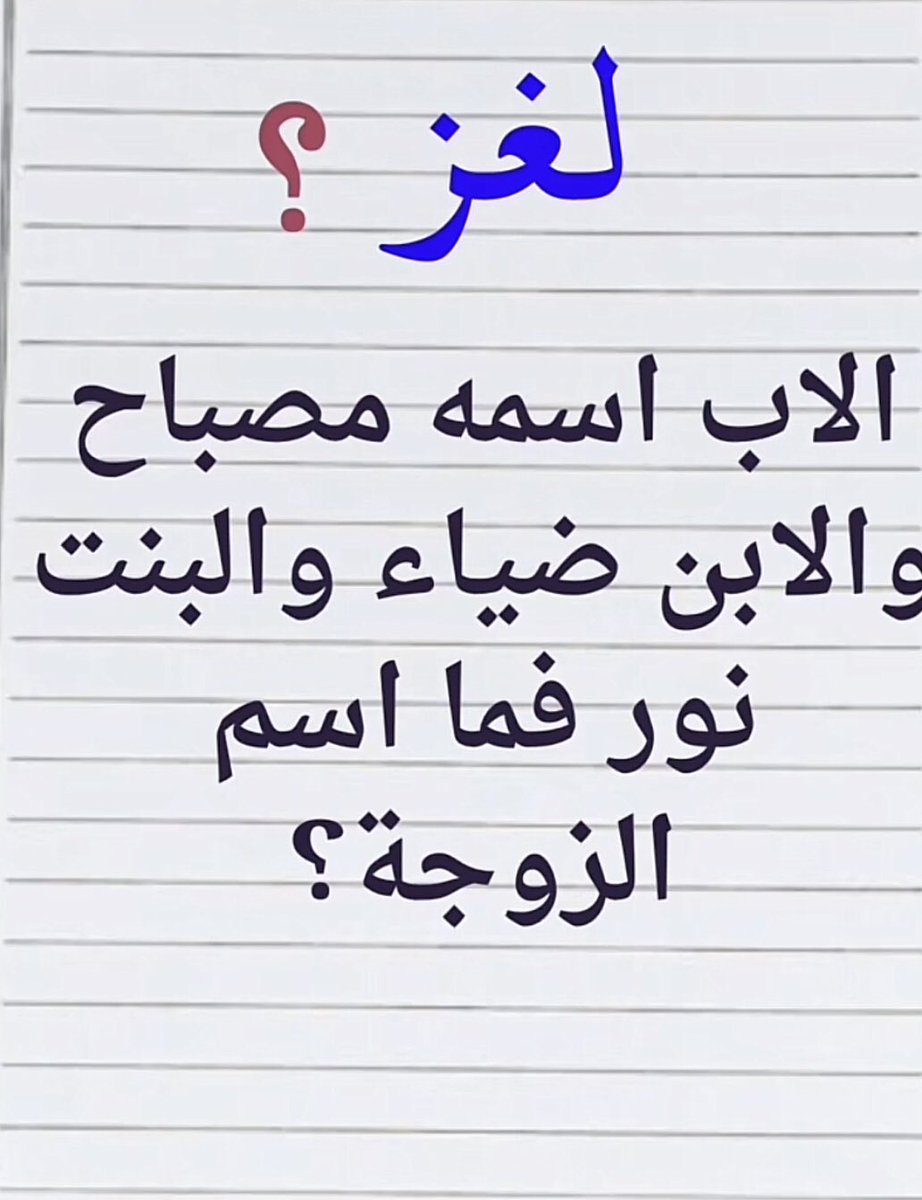 لغز ؟
الاب اسمه مصباح
والابن ضياء والبنت
نور فما اسم
الزوجة؟